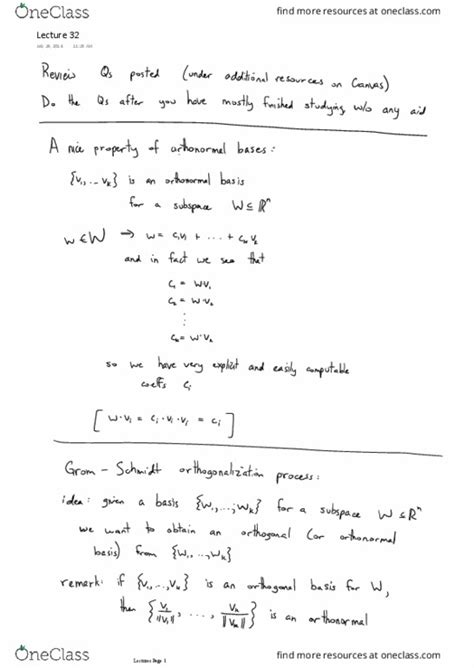 OneClass
find more resources at oneclass.com
Lecture 32
Review Qs posted (under additional resources on Canvas)
Do the Qs after you have mostly finished studying w/o any aid
A nice property of orthonormal bases:
{v₁, ... vₖ} is an orthonormal basis
for a subspace W ⊆ ℝⁿ
w ∈ W → w = c₁v₁ + ... + cₖvₖ
and in fact we see that
c₁ = w·v₁
c₂ = w·v₂
⋮
cₖ = w·vₖ
so we have very explicit and easily computable
coeffs cᵢ
[ w·vᵢ = cᵢ·vᵢ·vᵢ = cᵢ ]
Gram-Schmidt orthogonalization process:
idea: given a basis {w₁, ..., wₖ} for a subspace W ⊆ ℝⁿ
we want to obtain an orthogonal (or orthonormal
basis) from {w₁, ..., wₖ}
remark: if {v₁, ..., vₖ} is an orthogonal basis for W,
then {v₁/||v₁||, ..., vₖ/||vₖ||} is an orthonormal
Lectures Page 1
OneClass
find more resources at oneclass.com